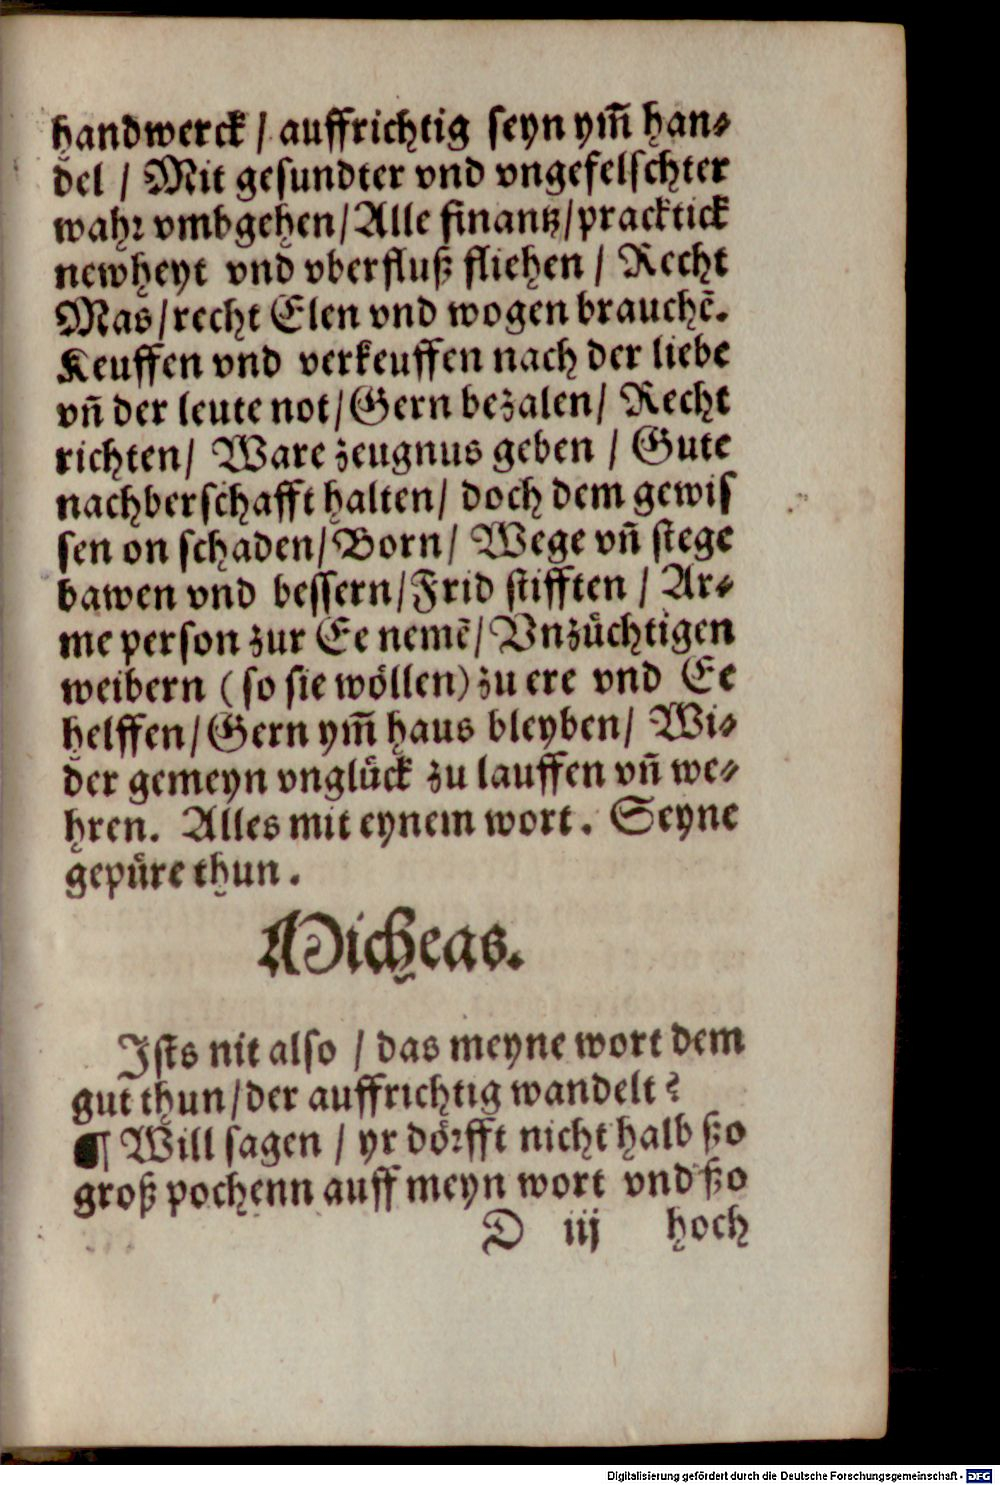 handwerck / auffrichtig seyn ym̄ han⸗
del / Mit gesundter vnd vngefelschter
wahr vmbgehen / Alle finantz / pracktick
newheyt vnd vberfluß fliehen / Recht
Mas / recht Elen vnd wogen brauchē.
Keuffen vnd verkeuffen nach der liebe
vñ der leute not / Gern bezalen / Recht
richten / Ware zeugnus geben / Gute
nachberschafft halten / doch dem gewis
sen on schaden / Born / Wege vñ stege
bawen vnd bessern / Frid stifften / Ar⸗
me person zur Ee nemē / Vnzüchtigen
weibern ( so sie wöllen) zu ere vnd Ee
helffen / Gern ym̄ haus bleyben / Wi⸗
der gemeyn vnglück zu lauffen vñ we⸗
hren. Alles mit eynem wort. Seyne
gepüre thun.
Micheas.
Ists nit also / das meyne wort dem
gut thun / der auffrichtig wandelt?
¶ Will sagen / yr dörfft nicht halb ßo
groß pochenn auff meyn wort vnd ßo
D iij hoch
Digitalisierung gefördert durch die Deutsche Forschungsgemeinschaft - DFG